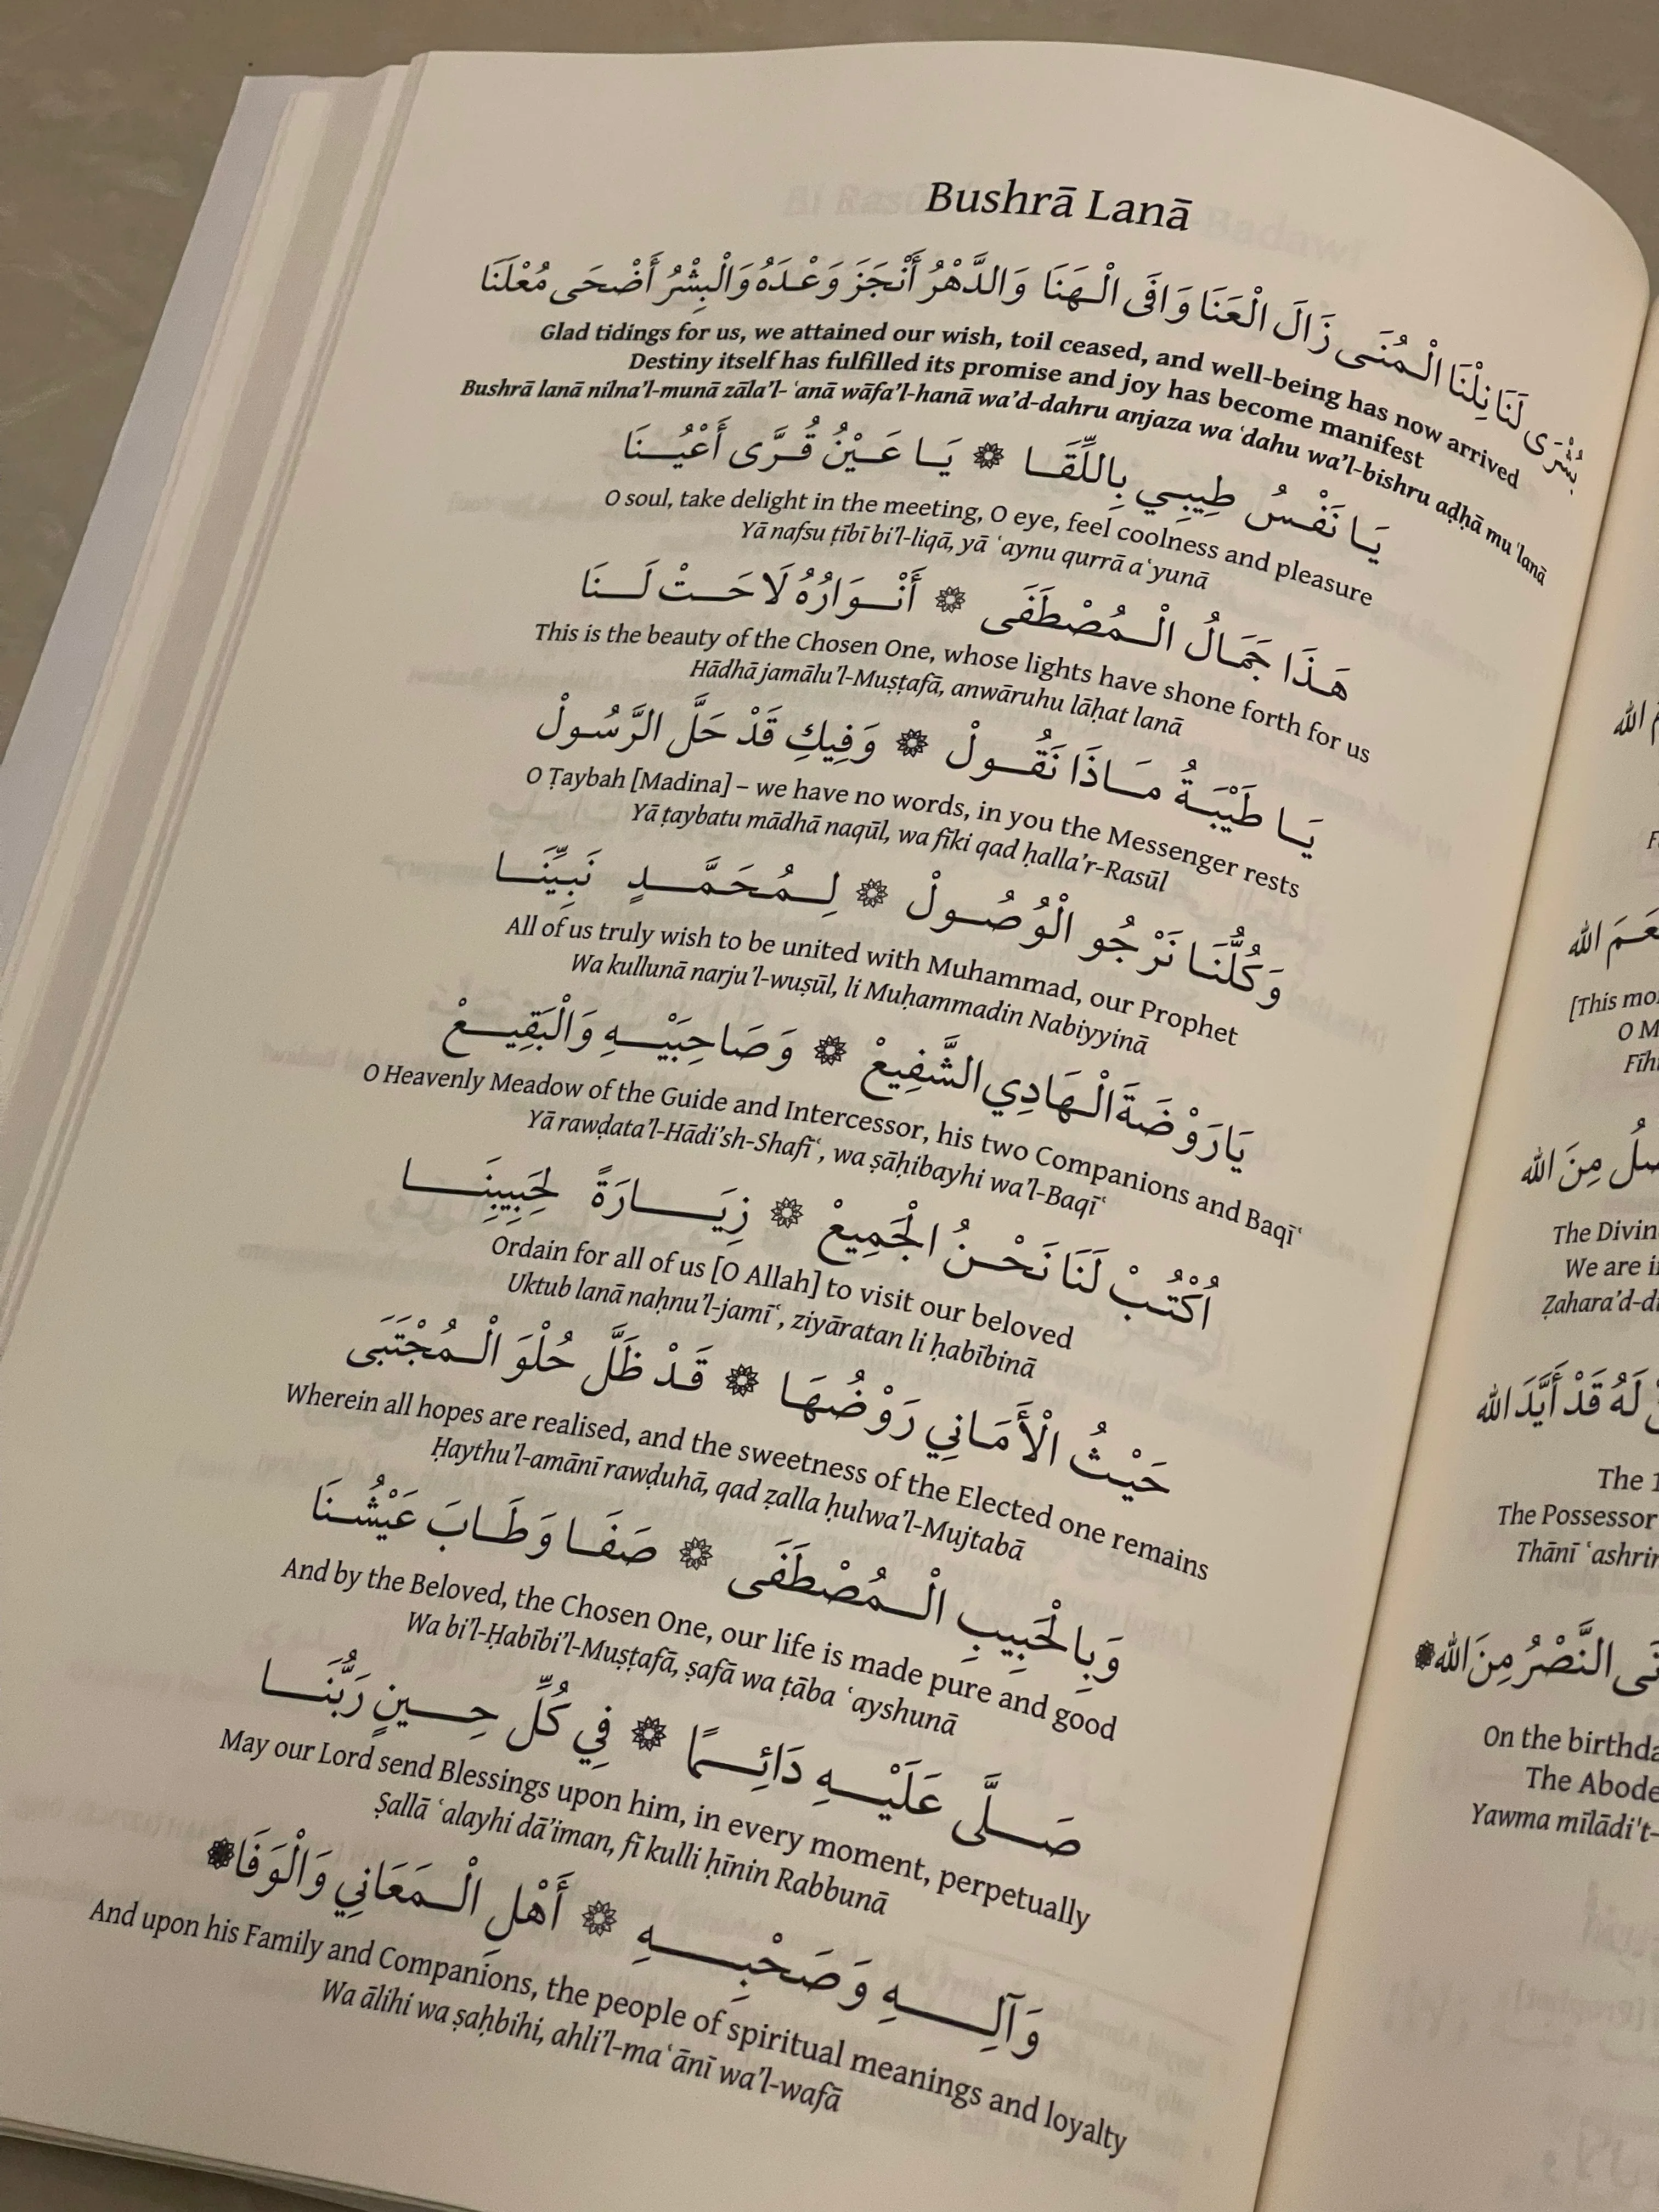 Bushrā Lanā
بُشْرَى لَنَا نِلْنَا الْمُنَى زَالَ الْعَنَا وَافَى الْهَنَا وَالدَّهْرُ أَنْجَزَ وَعْدَهُ وَالْبِشْرُ أَضْحَى مُعْلَنَا
Glad tidings for us, we attained our wish, toil ceased, and well-being has now arrived
Destiny itself has fulfilled its promise and joy has become manifest
Bushrā lanā nilna'l-munā zāla'l-ʿanā wāfa'l-hanā wa'd-dahru anjaza waʿdahu wa'l-bishru aḍḥā muʿlanā
يَا نَفْسُ طِيبِي بِاللِّقَا ۞ يَا عَيْنُ قُرَّى أَعْيُنَا
O soul, take delight in the meeting, O eye, feel coolness and pleasure
Yā nafsu ṭībī bi'l-liqā, yā ʿaynu qurrā aʿyunā
هَذَا جَمَالُ الْمُصْطَفَى ۞ أَنْوَارُهُ لَاحَتْ لَنَا
This is the beauty of the Chosen One, whose lights have shone forth for us
Hādhā jamālu'l-Muṣṭafā, anwāruhu lāḥat lanā
يَا طَيْبَةُ مَاذَا نَقُولْ ۞ وَفِيكِ قَدْ حَلَّ الرَّسُولْ
O Ṭaybah [Madina] – we have no words, in you the Messenger rests
Yā ṭaybatu mādhā naqūl, wa fīki qad ḥalla'r-Rasūl
وَكُلُّنَا نَرْجُو الْوُصُولْ ۞ لِمُحَمَّدٍ نَبِيِّنَا
All of us truly wish to be united with Muhammad, our Prophet
Wa kullunā narju'l-wuṣūl, li Muḥammadin Nabiyyinā
يَارَوْضَةَ الْهَادِي الشَّفِيعْ ۞ وَصَاحِبَيْهِ وَالْبَقِيعْ
O Heavenly Meadow of the Guide and Intercessor, his two Companions and Baqīʿ
Yā rawḍata'l-Hādi'sh-Shafīʿ, wa ṣāḥibayhi wa'l-Baqīʿ
اُكْتُبْ لَنَا نَحْنُ الْجَمِيعْ ۞ زِيَارَةً لِحَبِيبِنَا
Ordain for all of us [O Allah] to visit our beloved
Uktub lanā naḥnu'l-jamīʿ, ziyāratan li ḥabībinā
حَيْثُ الْأَمَانِي رَوْضُهَا ۞ قَدْ ظَلَّ حُلْوَ الْمُجْتَبَى
Wherein all hopes are realised, and the sweetness of the Elected one remains
Ḥaythu'l-amānī rawḍuhā, qad ẓalla ḥulwa'l-Mujtabā
وَبِالْحَبِيبِ الْمُصْطَفَى ۞ صَفَا وَطَابَ عَيْشُنَا
And by the Beloved, the Chosen One, our life is made pure and good
Wa bi'l-Ḥabībi'l-Muṣṭafā, ṣafā wa ṭāba ʿayshunā
صَلَّى عَلَيْهِ دَائِمًا ۞ فِي كُلِّ حِينٍ رَبُّنَا
May our Lord send Blessings upon him, in every moment, perpetually
Ṣallā ʿalayhi dā'iman, fī kulli ḥīnin Rabbunā
وَآلِهِ وَصَحْبِهِ ۞ أَهْلِ الْمَعَانِي وَالْوَفَا
And upon his Family and Companions, the people of spiritual meanings and loyalty
Wa ālihi wa ṣaḥbihi, ahli'l-maʿānī wa'l-wafā
الله
الله
[This
O
مِنَ الله
The
We are
لَهُ قَدْ أَيَّدَ الله
The
The Possessor
Thānī
النَّصْرُ مِنَ الله
On the
The Abode
Yawma mīlādi't-